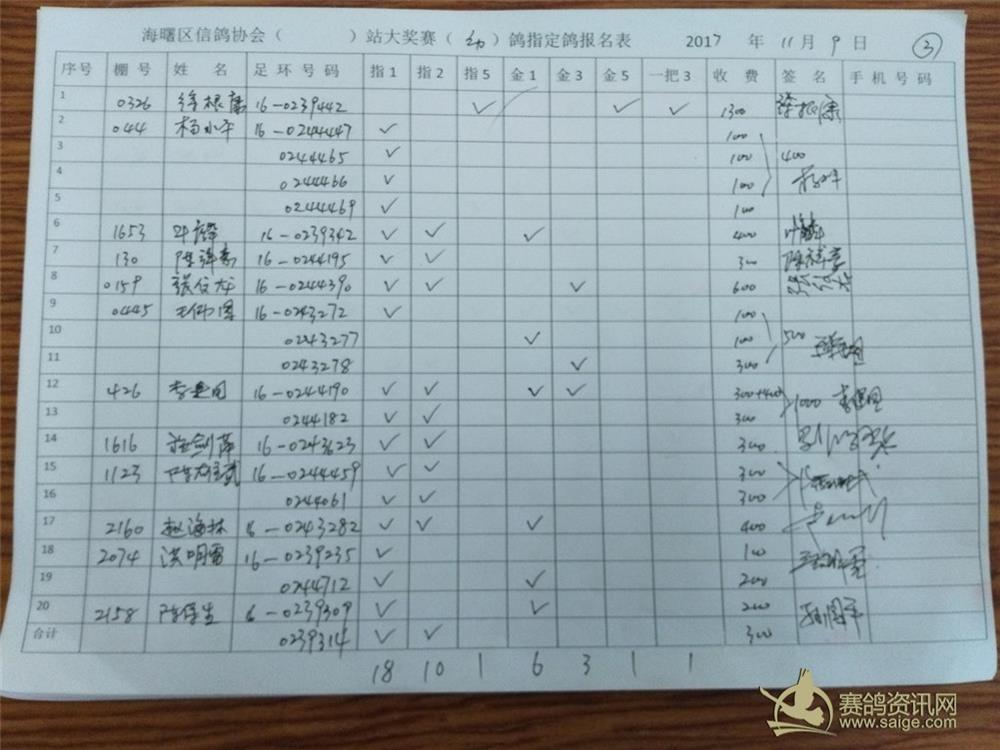 海曙区信鸽协会（ ）站大奖赛（幼）鸽指定鸽报名表 2017 年 11 月 9 日 ③
序号 棚号 姓 名 足环号码 指1 指2 指5 金1 金3 金5 一把3 收费 签名 手机号码
1 0326 徐根康 16-0239442 ✓ ✓ ✓ 1300 徐根康
2 044 杨水平 16-0244447 ✓ 100
3 0244465 ✓ 100 400
4 0244466 ✓ 100
5 0244469 ✓ 100
6 1653 16-0239342 ✓ ✓ ✓ 400
7 130 16-0244195 ✓ ✓ 300
8 0159 16-0244390 ✓ ✓ ✓ 600
9 0445 16-0243272 ✓ 100
10 0243277 ✓ 100 500
11 0243278 ✓ 300
12 426 16-0244190 ✓ ✓ ✓ ✓ 300+400
13 0244182 ✓ ✓ 300 1000
14 1616 16-0243623 ✓ ✓ 300
15 1123 16-0244459 ✓ ✓ 300
16 0244061 ✓ ✓ 300
17 2160 赵海林 16-0243282 ✓ ✓ ✓ 400
18 2074 洪明雷 16-0239235 ✓ 100
19 0244712 ✓ ✓ 200
20 2158 16-0239309 ✓ ✓ 200
合计 0239314 ✓ ✓ 300
18 10 1 6 3 1 1
赛鸽资讯网
www.saige.com